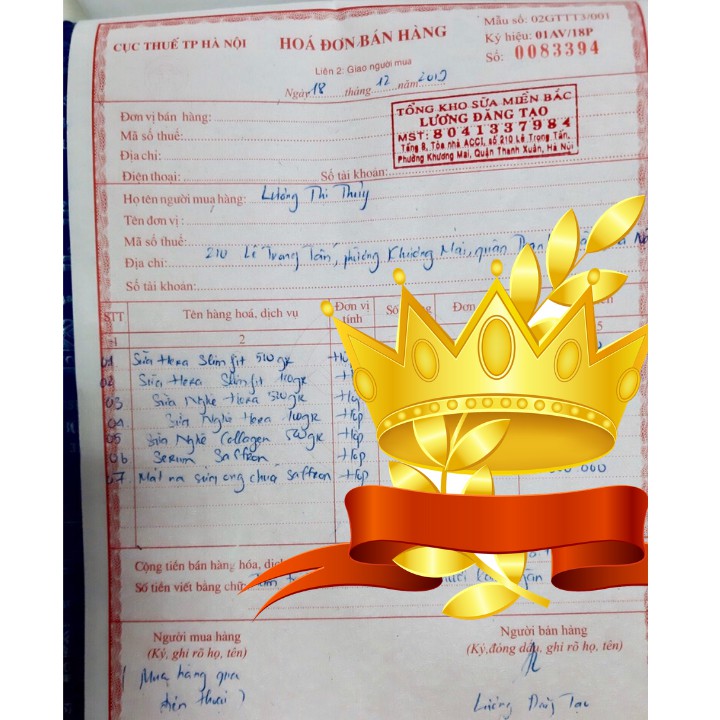 CỤC THUẾ TP HÀ NỘI
HOÁ ĐƠN BÁN HÀNG
Liên 2: Giao người mua
Ngày 18 tháng 12 năm 2019
Mẫu số: 02GTTT3/001
Ký hiệu: 01AV/18P
Số: 0083394
Đơn vị bán hàng:
Mã số thuế:
Địa chỉ:
Điện thoại: Số tài khoản:
TỔNG KHO SỮA MIỀN BẮC
LƯƠNG ĐĂNG TẠO
MST: 8041337984
Tầng 8, Tòa nhà ACCI, số 210 Lê Trọng Tấn,
Phường Khương Mai, Quận Thanh Xuân, Hà Nội
Họ tên người mua hàng: Lương Thị Thủy
Tên đơn vị:
Mã số thuế:
Địa chỉ: 210 Lê Trọng Tấn, phường Khương Mai, quận
Số tài khoản:
STT Tên hàng hoá, dịch vụ Đơn vị tính Số Đơn
1 2 5
01 Sữa Hera Slimfit 510gr
02 Sữa Hera Slimfit 110gr
03 Sữa Nghệ Hera 520gr Hộp
04 Sữa Nghệ Hera 110gr Hộp
05 Sữa Nghệ Collagen 520gr Hộp
06 Serum Saffron Hộp
07 Mặt nạ sữa ong chúa Saffron Hộp
Cộng tiền bán hàng hóa, dịch
Số tiền viết bằng chữ: Tám
Người mua hàng
(Ký, ghi rõ họ, tên)
(Mua hàng qua
điện thoại)
Người bán hàng
(Ký, đóng dấu, ghi rõ họ, tên)
Lương Đăng Tạo